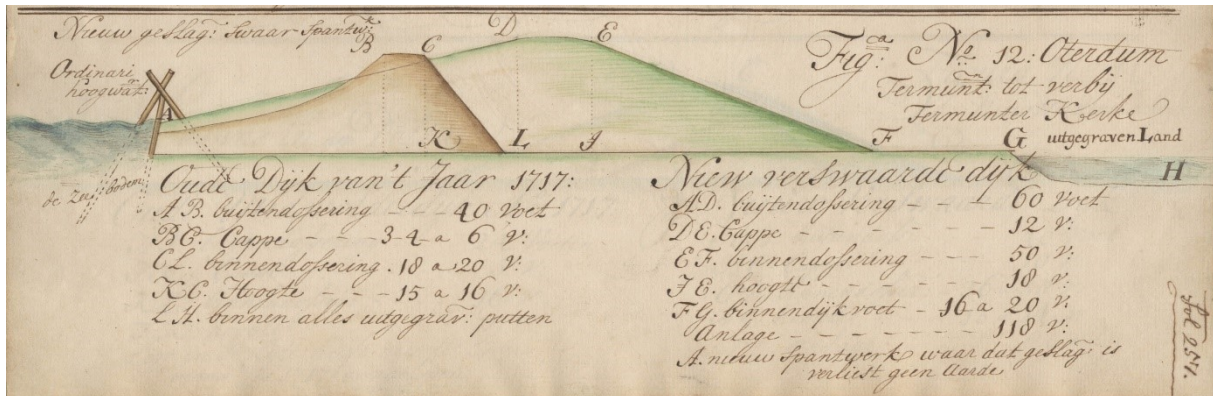 Nieuw geslag: swaar Spantw:k
B C D E
Ordinari
hoogwat:r
A
Fig:ca No 12: Oterdum
Termunt:n tot verbij
Termunter Kerke
uitgegraven Land
K L J F G H
de Zee bodem
Oude Dijk van't Jaar 1717:
A B. buijtendossering - - - 40 voet
BC. Cappe - - - 3-4-a 6 v:
CL. binnendossering. 18 a 20 v:
KC. Hoogte - - - 15 a 16 v:
L H. binnen alles uitgegrav: putten
Niew verswaarde dijk
AD. buijtendossering - - - 60 voet
DE. Cappe - - - - - - 12 v:
EF. binnendossering - - - 50 v:
JE. hoogte - - - - - - 18 v:
FG. binnendijk voet - - 16 a 20 v:
Anlage - - - - - - 118 v:
A. nieuw Spantwerk waar dat geslag: is
verliest geen Aarde
Fol 257.